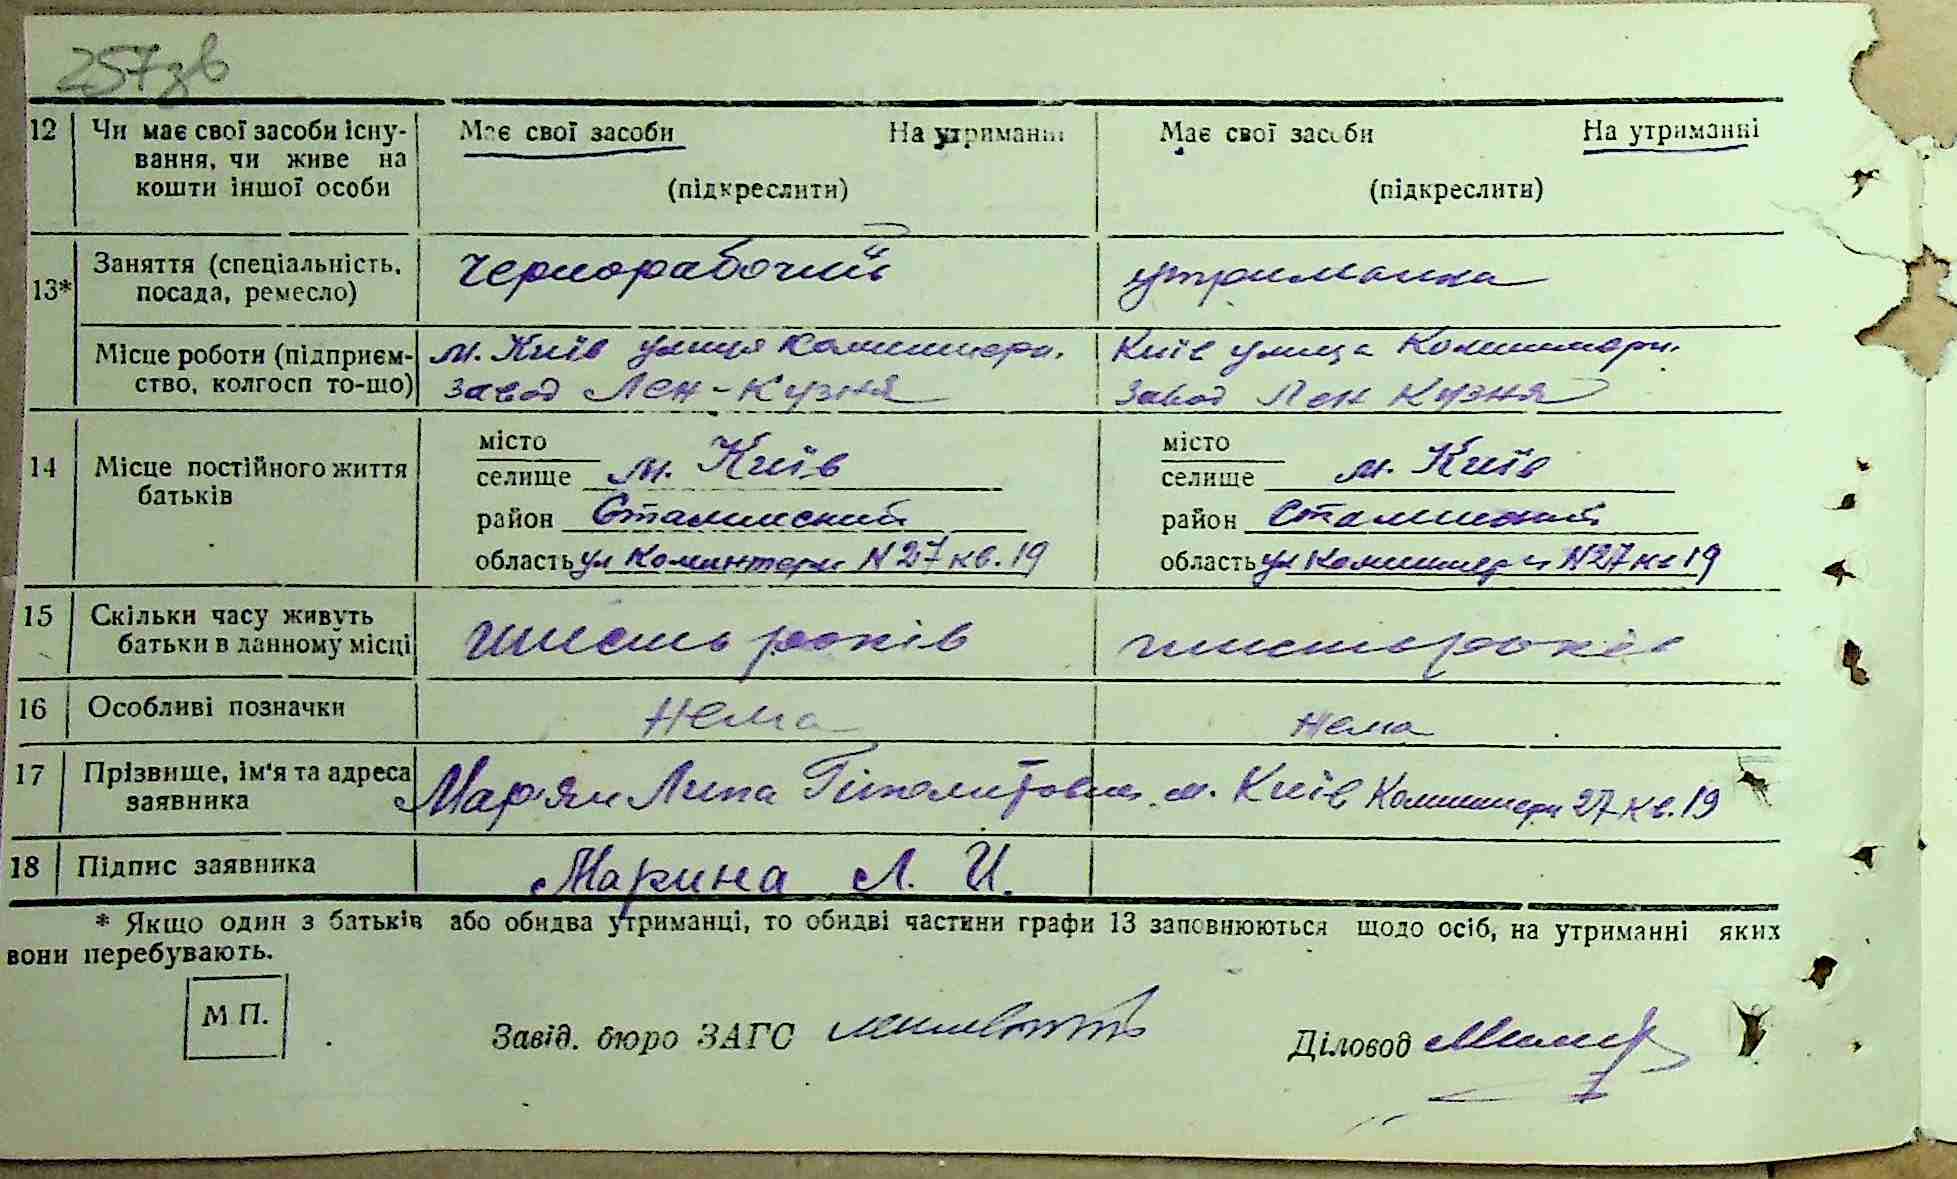 257зв
12 Чи має свої засоби існу- Має свої засоби На утриманні Має свої засоби На утриманні
вання, чи живе на
кошти іншої особи (підкреслити) (підкреслити)
Заняття (спеціальність, Чернорабочий утриманка
13* посада, ремесло)
Місце роботи (підприєм- м. Київ улиця Коминтерн. Київ улица Коминтерн.
ство, колгосп то-що) завод Лен-Кузня завод Лен Кузня
місто місто
14 Місце постійного життя селище м. Київ селище м. Київ
батьків
район Сталинский район Сталинский
область ул Коминтерн N 27 кв. 19 область ул Коминтерн N 27 кв 19
15 Скільки часу живуть шесть років шесть років
батьки в данному місці
16 Особливі позначки Нема Нема
17 Прізвище, ім'я та адреса Липа м. Київ Коминтерн 27 кв. 19
заявника
18 Підпис заявника Марина Л. И.
* Якщо один з батьків або обидва утриманці, то обидві частини графи 13 заповнюються щодо осіб, на утриманні яких
вони перебувають.
М П.
Завід. бюро ЗАГС Діловод